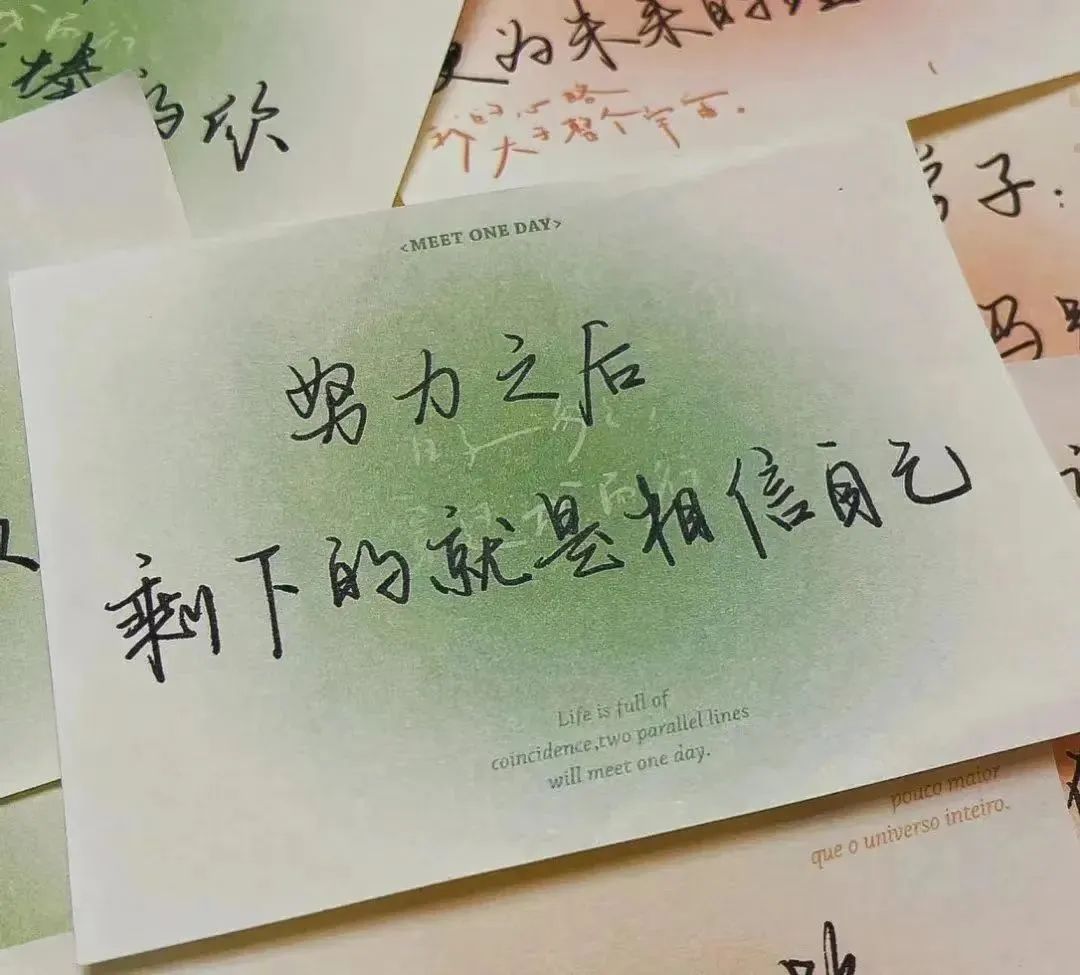 的你
为未来的
我的心略
大于整个宇宙.
子:
妈
<MEET ONE DAY>
努力之后
剩下的就是相信自己
Life is full of
coincidence,two parallel lines
will meet one day.
pouco maior
que o universo inteiro.